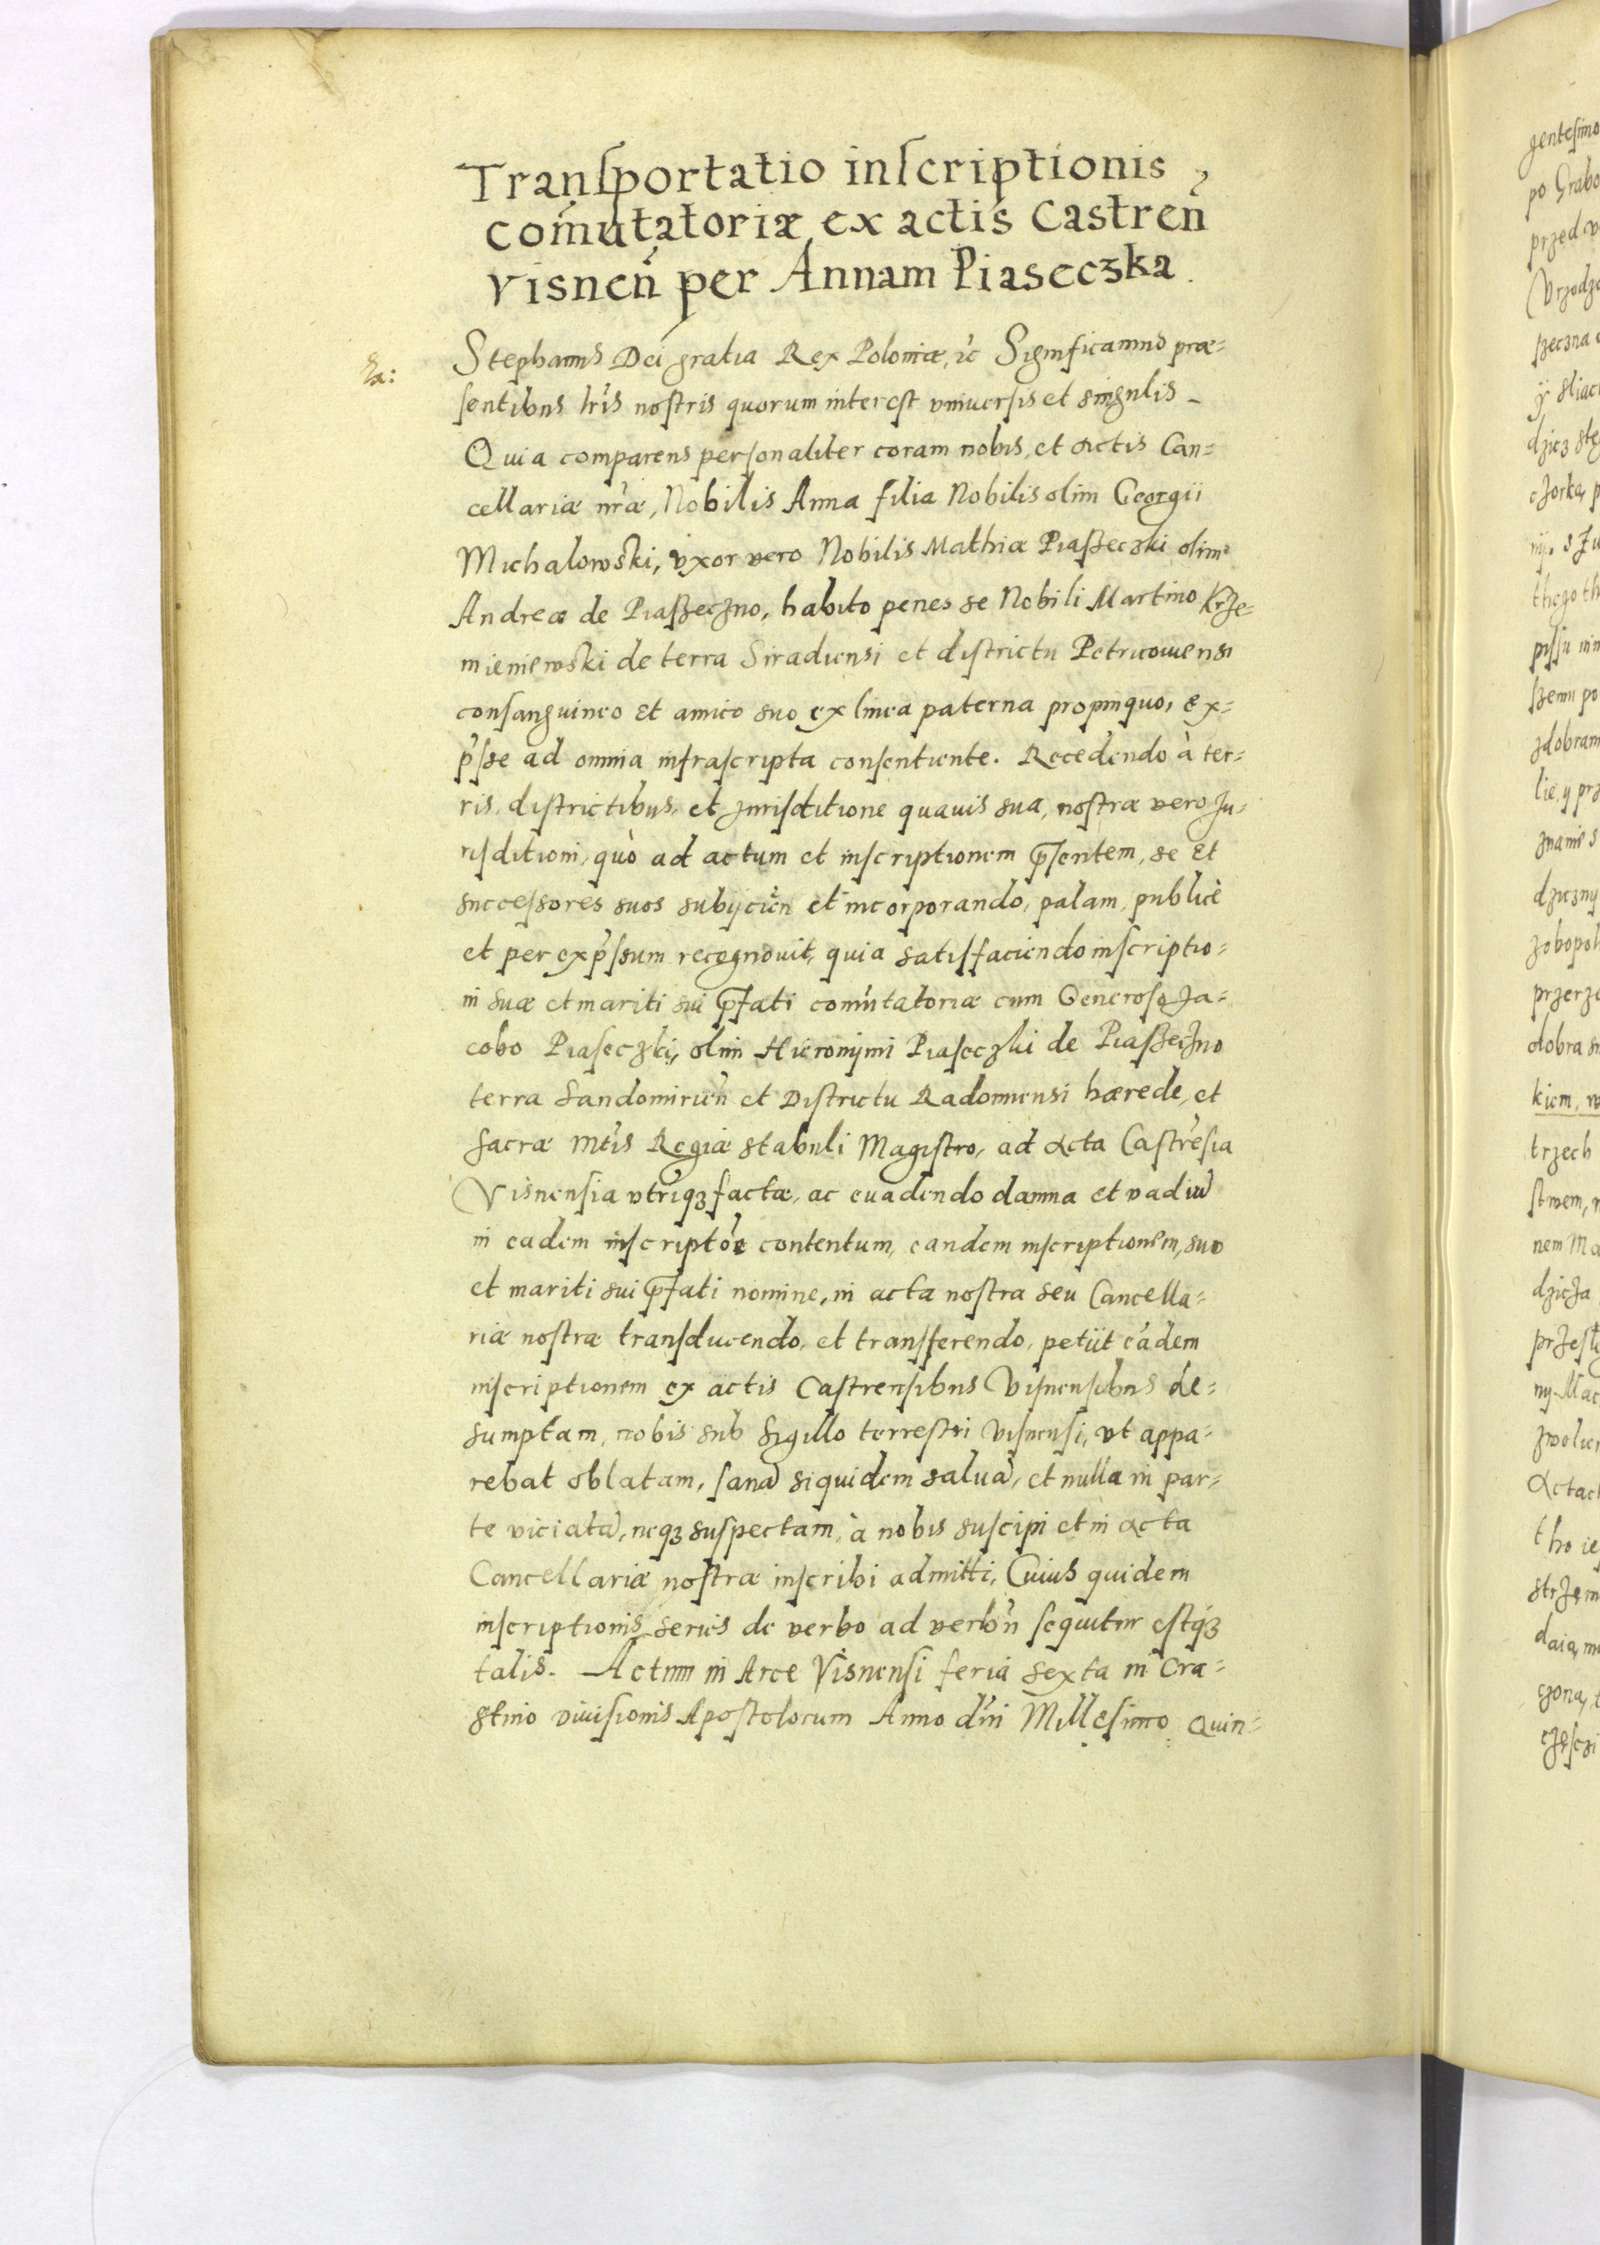 Transportatio inscriptionis
com̃utatoriæ ex actis Castreñ
Visneñ per Annam Piaseczka.
Stephanus Dei gratia Rex Poloniæ, &c Significamus præ=
sentibus lris nostris quorum interest vniuersis et singulis –
Quia comparens personaliter coram nobis, et actis Can=
cellariæ nr̃æ, Nobilis Anna filia Nobilis olim Georgii
Michalowski, vxor vero Nobilis Mathiæ Piaszeczki olim
Andreæ de Piaszeczno, habito penes se Nobili Martino Krze=
mieniewski de terra Siradiensi et districtu Petricouiensi
consanguineo et amico suo ex linea paterna propinquo, ex=
p̃sse ad omnia infrascripta consentiente. Recedendo à ter=
ris, districtibus, et jurisditione quauis sua, nostræ vero Ju=
risditioni, quò ad actum et inscriptionem p̃sentem, se et
successores suos subijcieñ et incorporando, palam, publicè
et per exp̃ssum recognouit, quia satisfaciendo inscriptio=
ni suæ et mariti sui p̃fati com̃utatoriæ cum Generoso Ja=
cobo Piaseczki, olim Hieronymi Piaseczki de Piaszeczno
terra Sandomirieñ et Districtu Radomiensi hærede, et
Sacræ Mtis Regiæ stabuli Magistro, ad acta Castrẽsia
Visnensia vtrinqꝫ factæ, ac euadendo damna et vadiũ
in eadem inscriptõe contentum, eandem inscriptionem, suo
et mariti sui p̃fati nomine, in acta nostra seu Cancella=
riæ nostræ transducendo, et transferendo, petiit eãdem
inscriptionem ex actis Castrensibus Visnensibus de=
sumptam, nobis sub Sigillo terrestri Visnensi, vt appa=
rebat oblatam, sanã siquidem saluã, et nulla in par=
te viciatã, neqꝫ suspectam, à nobis suscipi et in acta
Cancellariæ nostræ inscribi admitti, Cuius quidem
inscriptionis series de verbo ad verbũ sequitur estqꝫ
talis. Actum in Arce Visnensi feria sexta in Cra=
stino diuisionis Apostolorum Anno dñi Millesimo Quin=